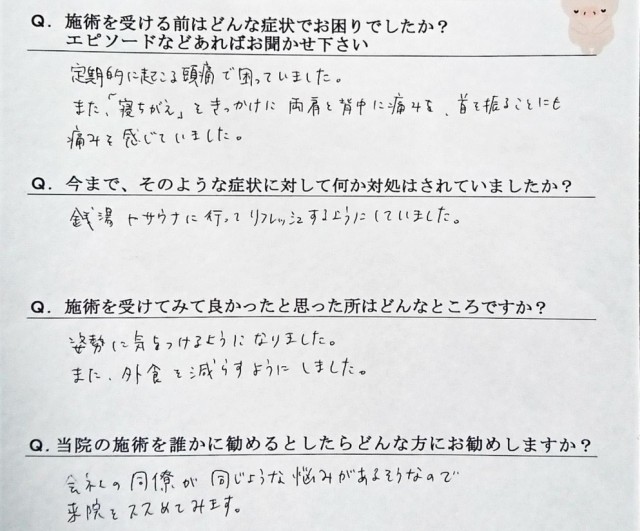 Q. 施術を受ける前はどんな症状でお困りでしたか?
エピソードなどあればお聞かせ下さい
定期的に起こる頭痛で困っていました。
また、「寝ちがえ」をきっかけに両肩と背中に痛みを、首を振ることにも
痛みを感じていました。
Q. 今まで、そのような症状に対して何か対処はされていましたか?
銭湯やサウナに行ってリフレッシュするようにしていました。
Q. 施術を受けてみて良かったと思った所はどんなところですか?
姿勢に気をつけるようになりました。
また、外食を減らすようにしました。
Q. 当院の施術を誰かに勧めるとしたらどんな方にお勧めしますか?
会社の同僚が同じような悩みがあるそうなので
来院をススめてみます。